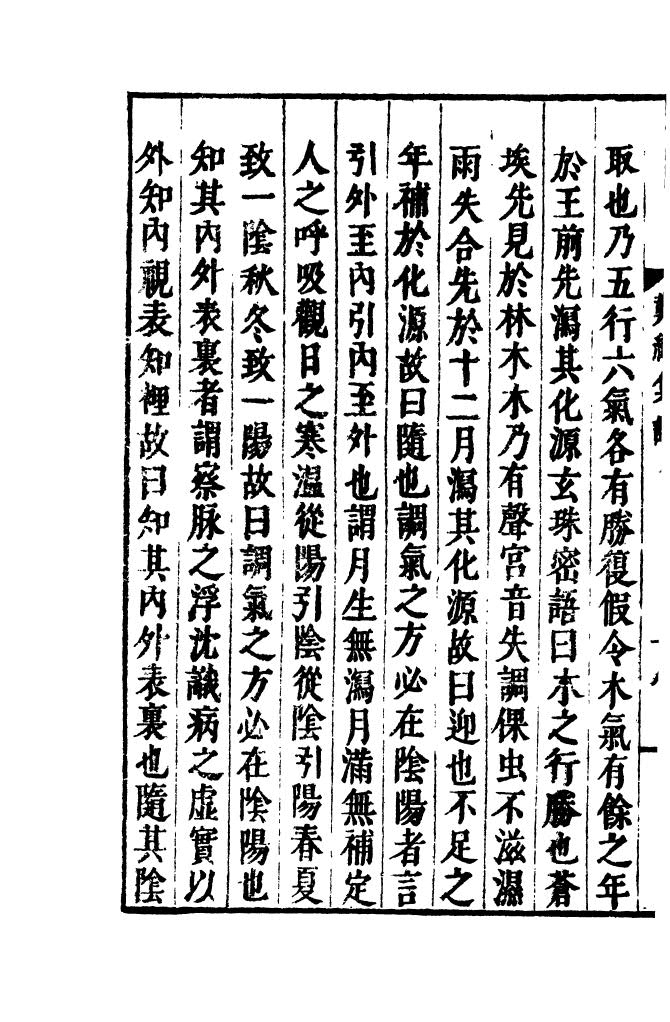 取也乃五行六氣各有勝復假令木氣有餘之年
於王前先瀉其化源玄珠密語曰木之行勝也蒼
埃先見於林木木乃有聲宮音失調倮虫不滋濕
雨失合先於十二月瀉其化源故曰迎也不足之
年補於化源故曰隨也調氣之方必在陰陽者言
引外至內引內至外也謂月生無瀉月滿無補定
人之呼吸觀日之寒溫從陽引陰從陰引陽春夏
致一陰秋冬致一陽故曰調氣之方必在陰陽也
知其內外表裏者謂察脉之浮沈識病之虛實以
外知內視表知裡故曰知其內外表裏也隨其陰